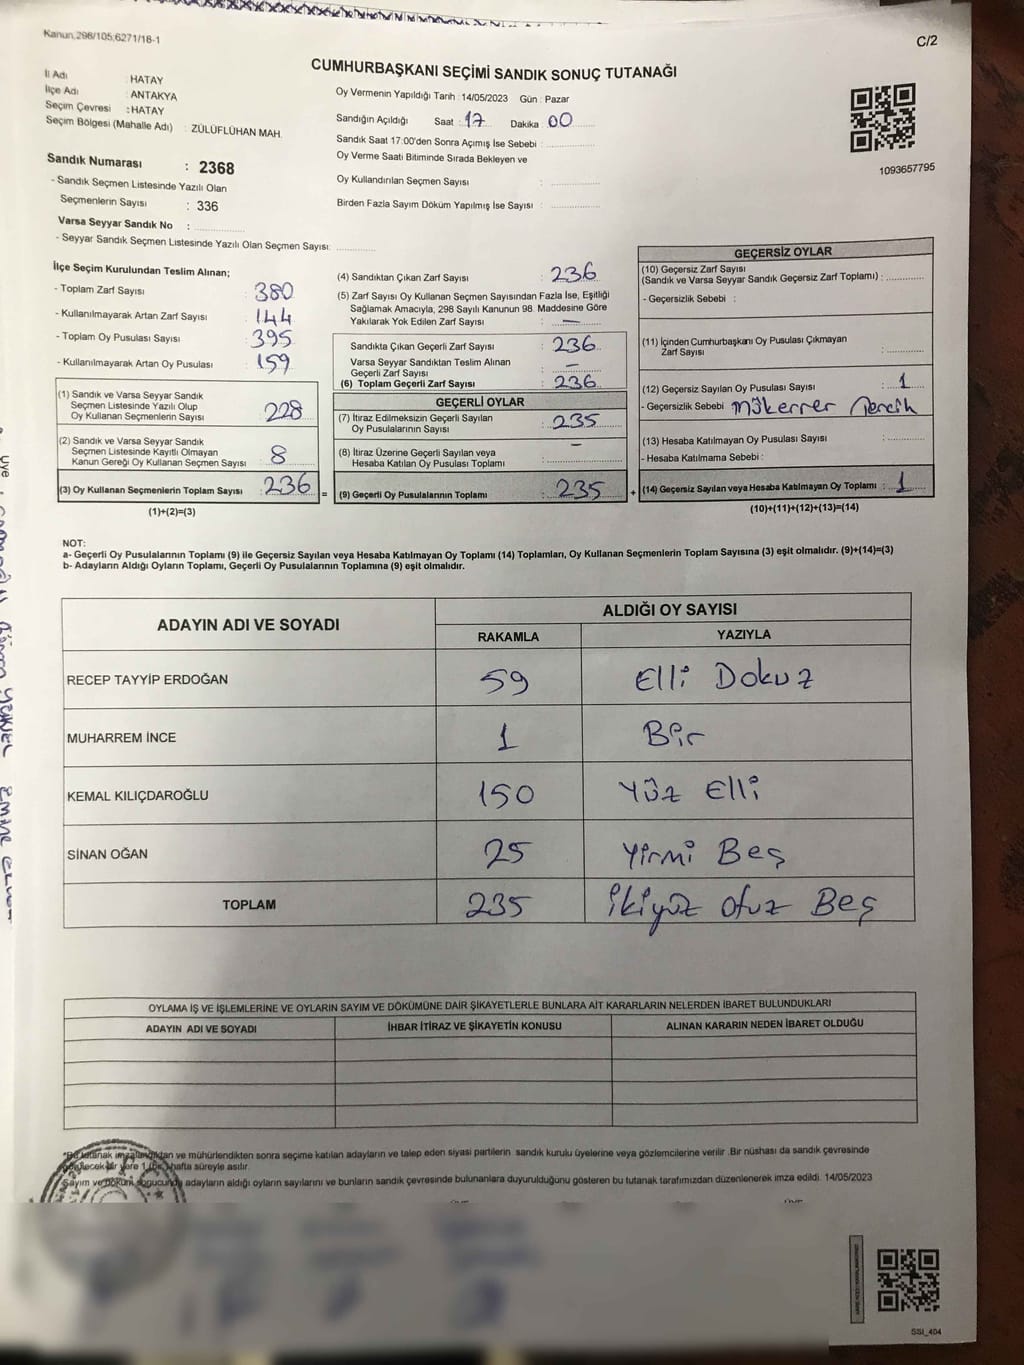 Kanun.298/105,6271/18-1
C/2
CUMHURBAŞKANI SEÇİMİ SANDIK SONUÇ TUTANAĞI
İl Adı : HATAY
İlçe Adı : ANTAKYA
Seçim Çevresi : HATAY
Seçim Bölgesi (Mahalle Adı) : ZÜLÜFLÜHAN MAH.
Sandık Numarası : 2368
- Sandık Seçmen Listesinde Yazılı Olan
Seçmenlerin Sayısı : 336
Varsa Seyyar Sandık No :
- Seyyar Sandık Seçmen Listesinde Yazılı Olan Seçmen Sayısı:
Oy Vermenin Yapıldığı Tarih : 14/05/2023 Gün : Pazar
Sandığın Açıldığı Saat : 17 Dakika 00
Sandık Saat 17:00'den Sonra Açımış İse Sebebi :
Oy Verme Saati Bitiminde Sırada Bekleyen ve
Oy Kullandırılan Seçmen Sayısı :
Birden Fazla Sayım Döküm Yapılmış İse Sayısı :
1093657795
İlçe Seçim Kurulundan Teslim Alınan;
- Toplam Zarf Sayısı : 380
- Kullanılmayarak Artan Zarf Sayısı : 144
- Toplam Oy Pusulası Sayısı : 395
- Kullanılmayarak Artan Oy Pusulası : 159
(1) Sandık ve Varsa Seyyar Sandık
Seçmen Listesinde Yazılı Olup
Oy Kullanan Seçmenlerin Sayısı : 228
(2) Sandık ve Varsa Seyyar Sandık
Seçmen Listesinde Kayıtlı Olmayan
Kanun Gereği Oy Kullanan Seçmen Sayısı : 8
(3) Oy Kullanan Seçmenlerin Toplam Sayısı : 236 =
(1)+(2)=(3)
(4) Sandıktan Çıkan Zarf Sayısı : 236
(5) Zarf Sayısı Oy Kullanan Seçmen Sayısından Fazla İse, Eşitliği
Sağlamak Amacıyla, 298 Sayılı Kanunun 98. Maddesine Göre
Yakılarak Yok Edilen Zarf Sayısı : —
Sandıkta Çıkan Geçerli Zarf Sayısı : 236
Varsa Seyyar Sandıktan Teslim Alınan
Geçerli Zarf Sayısı : —
(6) Toplam Geçerli Zarf Sayısı : 236
GEÇERLİ OYLAR
(7) İtiraz Edilmeksizin Geçerli Sayılan
Oy Pusulalarının Sayısı : 235
(8) İtiraz Üzerine Geçerli Sayılan veya
Hesaba Katılan Oy Pusulası Toplamı : —
(9) Geçerli Oy Pusulalarının Toplamı : 235 +
GEÇERSİZ OYLAR
(10) Geçersiz Zarf Sayısı
(Sandık ve Varsa Seyyar Sandık Geçersiz Zarf Toplamı) :
- Geçersizlik Sebebi :
(11) İçinden Cumhurbaşkanı Oy Pusulası Çıkmayan
Zarf Sayısı :
(12) Geçersiz Sayılan Oy Pusulası Sayısı : 1
- Geçersizlik Sebebi : Mükerrer Tercih
(13) Hesaba Katılmayan Oy Pusulası Sayısı :
- Hesaba Katılmama Sebebi :
(14) Geçersiz Sayılan veya Hesaba Katılmayan Oy Toplamı : 1
(10)+(11)+(12)+(13)=(14)
NOT:
a- Geçerli Oy Pusulalarının Toplamı (9) ile Geçersiz Sayılan veya Hesaba Katılmayan Oy Toplamı (14) Toplamları, Oy Kullanan Seçmenlerin Toplam Sayısına (3) eşit olmalıdır. (9)+(14)=(3)
b- Adayların Aldığı Oyların Toplamı, Geçerli Oy Pusulalarının Toplamına (9) eşit olmalıdır.
ADAYIN ADI VE SOYADI ALDIĞI OY SAYISI
RAKAMLA YAZIYLA
RECEP TAYYİP ERDOĞAN 59 Elli Dokuz
MUHARREM İNCE 1 Bir
KEMAL KILIÇDAROĞLU 150 Yüz Elli
SİNAN OĞAN 25 Yirmi Beş
TOPLAM 235 İkiyüz Otuz Beş
OYLAMA İŞ VE İŞLEMLERİNE VE OYLARIN SAYIM VE DÖKÜMÜNE DAİR ŞİKAYETLERLE BUNLARA AİT KARARLARIN NELERDEN İBARET BULUNDUKLARI
ADAYIN ADI VE SOYADI İHBAR İTİRAZ VE ŞİKAYETİN KONUSU ALINAN KARARIN NEDEN İBARET OLDUĞU
*Bu tutanak imzalandıktan ve mühürlendikten sonra seçime katılan adayların ve talep eden siyasi partilerin sandık kurulu üyelerine veya gözlemcilerine verilir .Bir nüshası da sandık çevresinde
görülecek bir yere 1 (bir) hafta süreyle asılır.
Sayım ve döküm sonucunda adayların aldığı oyların sayılarını ve bunların sandık çevresinde bulunanlara duyurulduğunu gösteren bu tutanak tarafımızdan düzenlenerek imza edildi. 14/05/2023
SSI_404